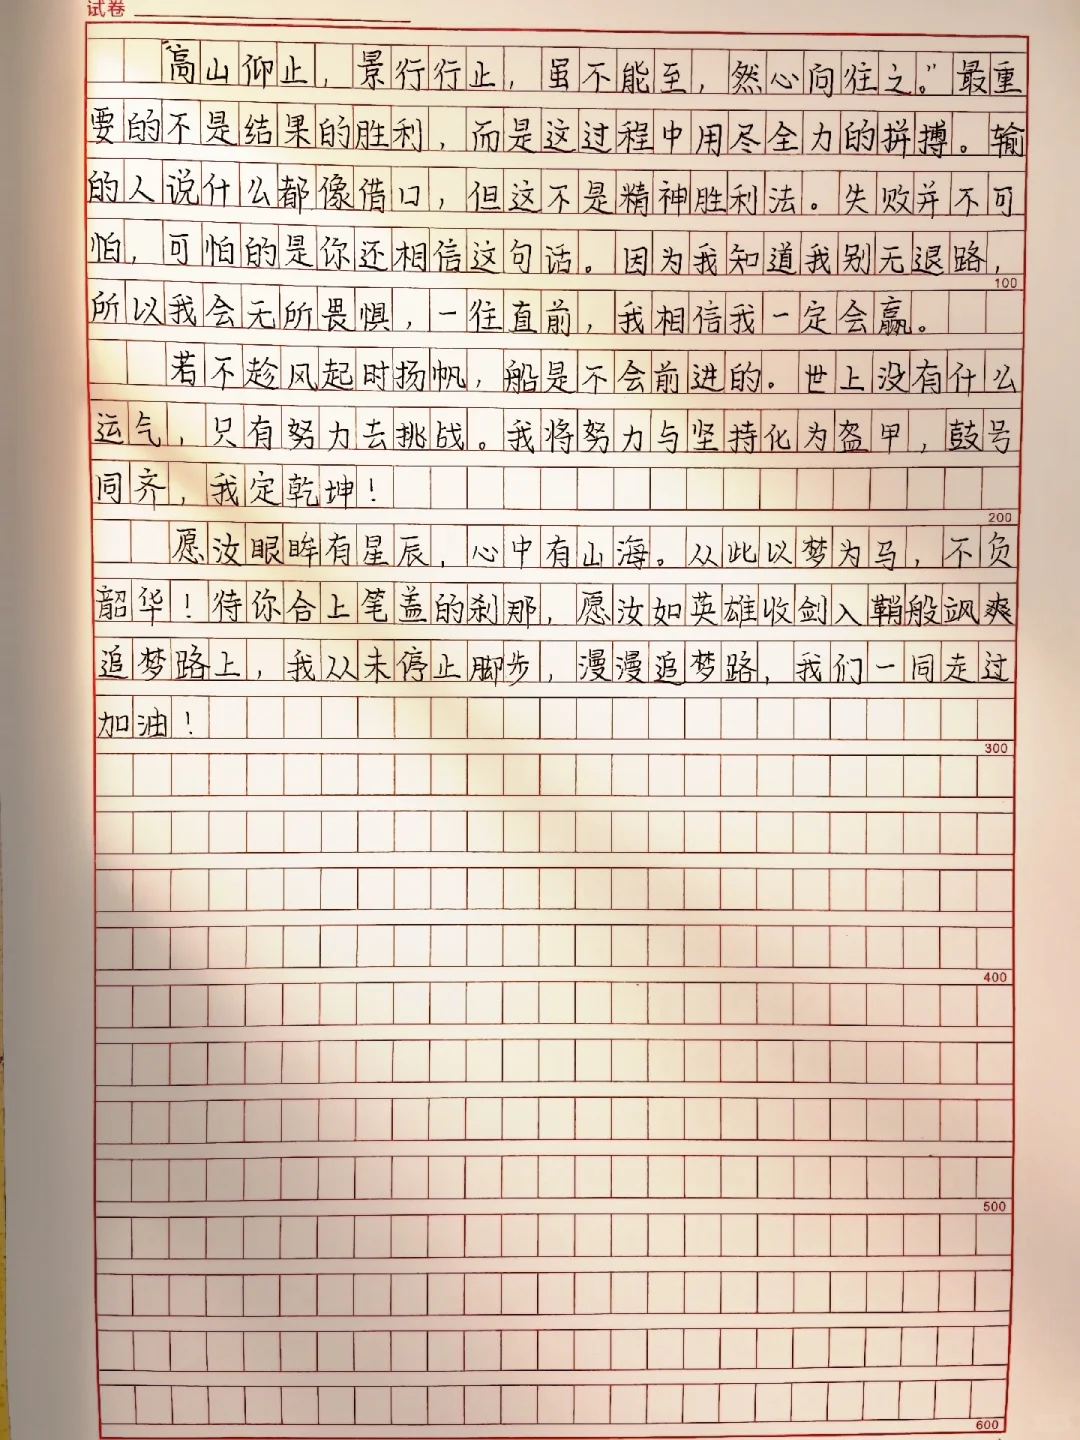 试卷
“高山仰止，景行行止，虽不能至，然心向往之。”最重
要的不是结果的胜利，而是这过程中用尽全力的拼搏。输
的人说什么都像借口，但这不是精神胜利法。失败并不可
怕，可怕的是你还相信这句话。因为我知道我别无退路，
100
所以我会无所畏惧，一往直前，我相信我一定会赢。
若不趁风起时扬帆，船是不会前进的。世上没有什么
运气，只有努力去挑战。我将努力与坚持化为盔甲，鼓号
同齐，我定乾坤！
200
愿汝眼眸有星辰，心中有山海。从此以梦为马，不负
韶华！待你合上笔盖的刹那，愿汝如英雄收剑入鞘般飒爽
追梦路上，我从未停止脚步，漫漫追梦路，我们一同走过
加油！
300
400
500
600